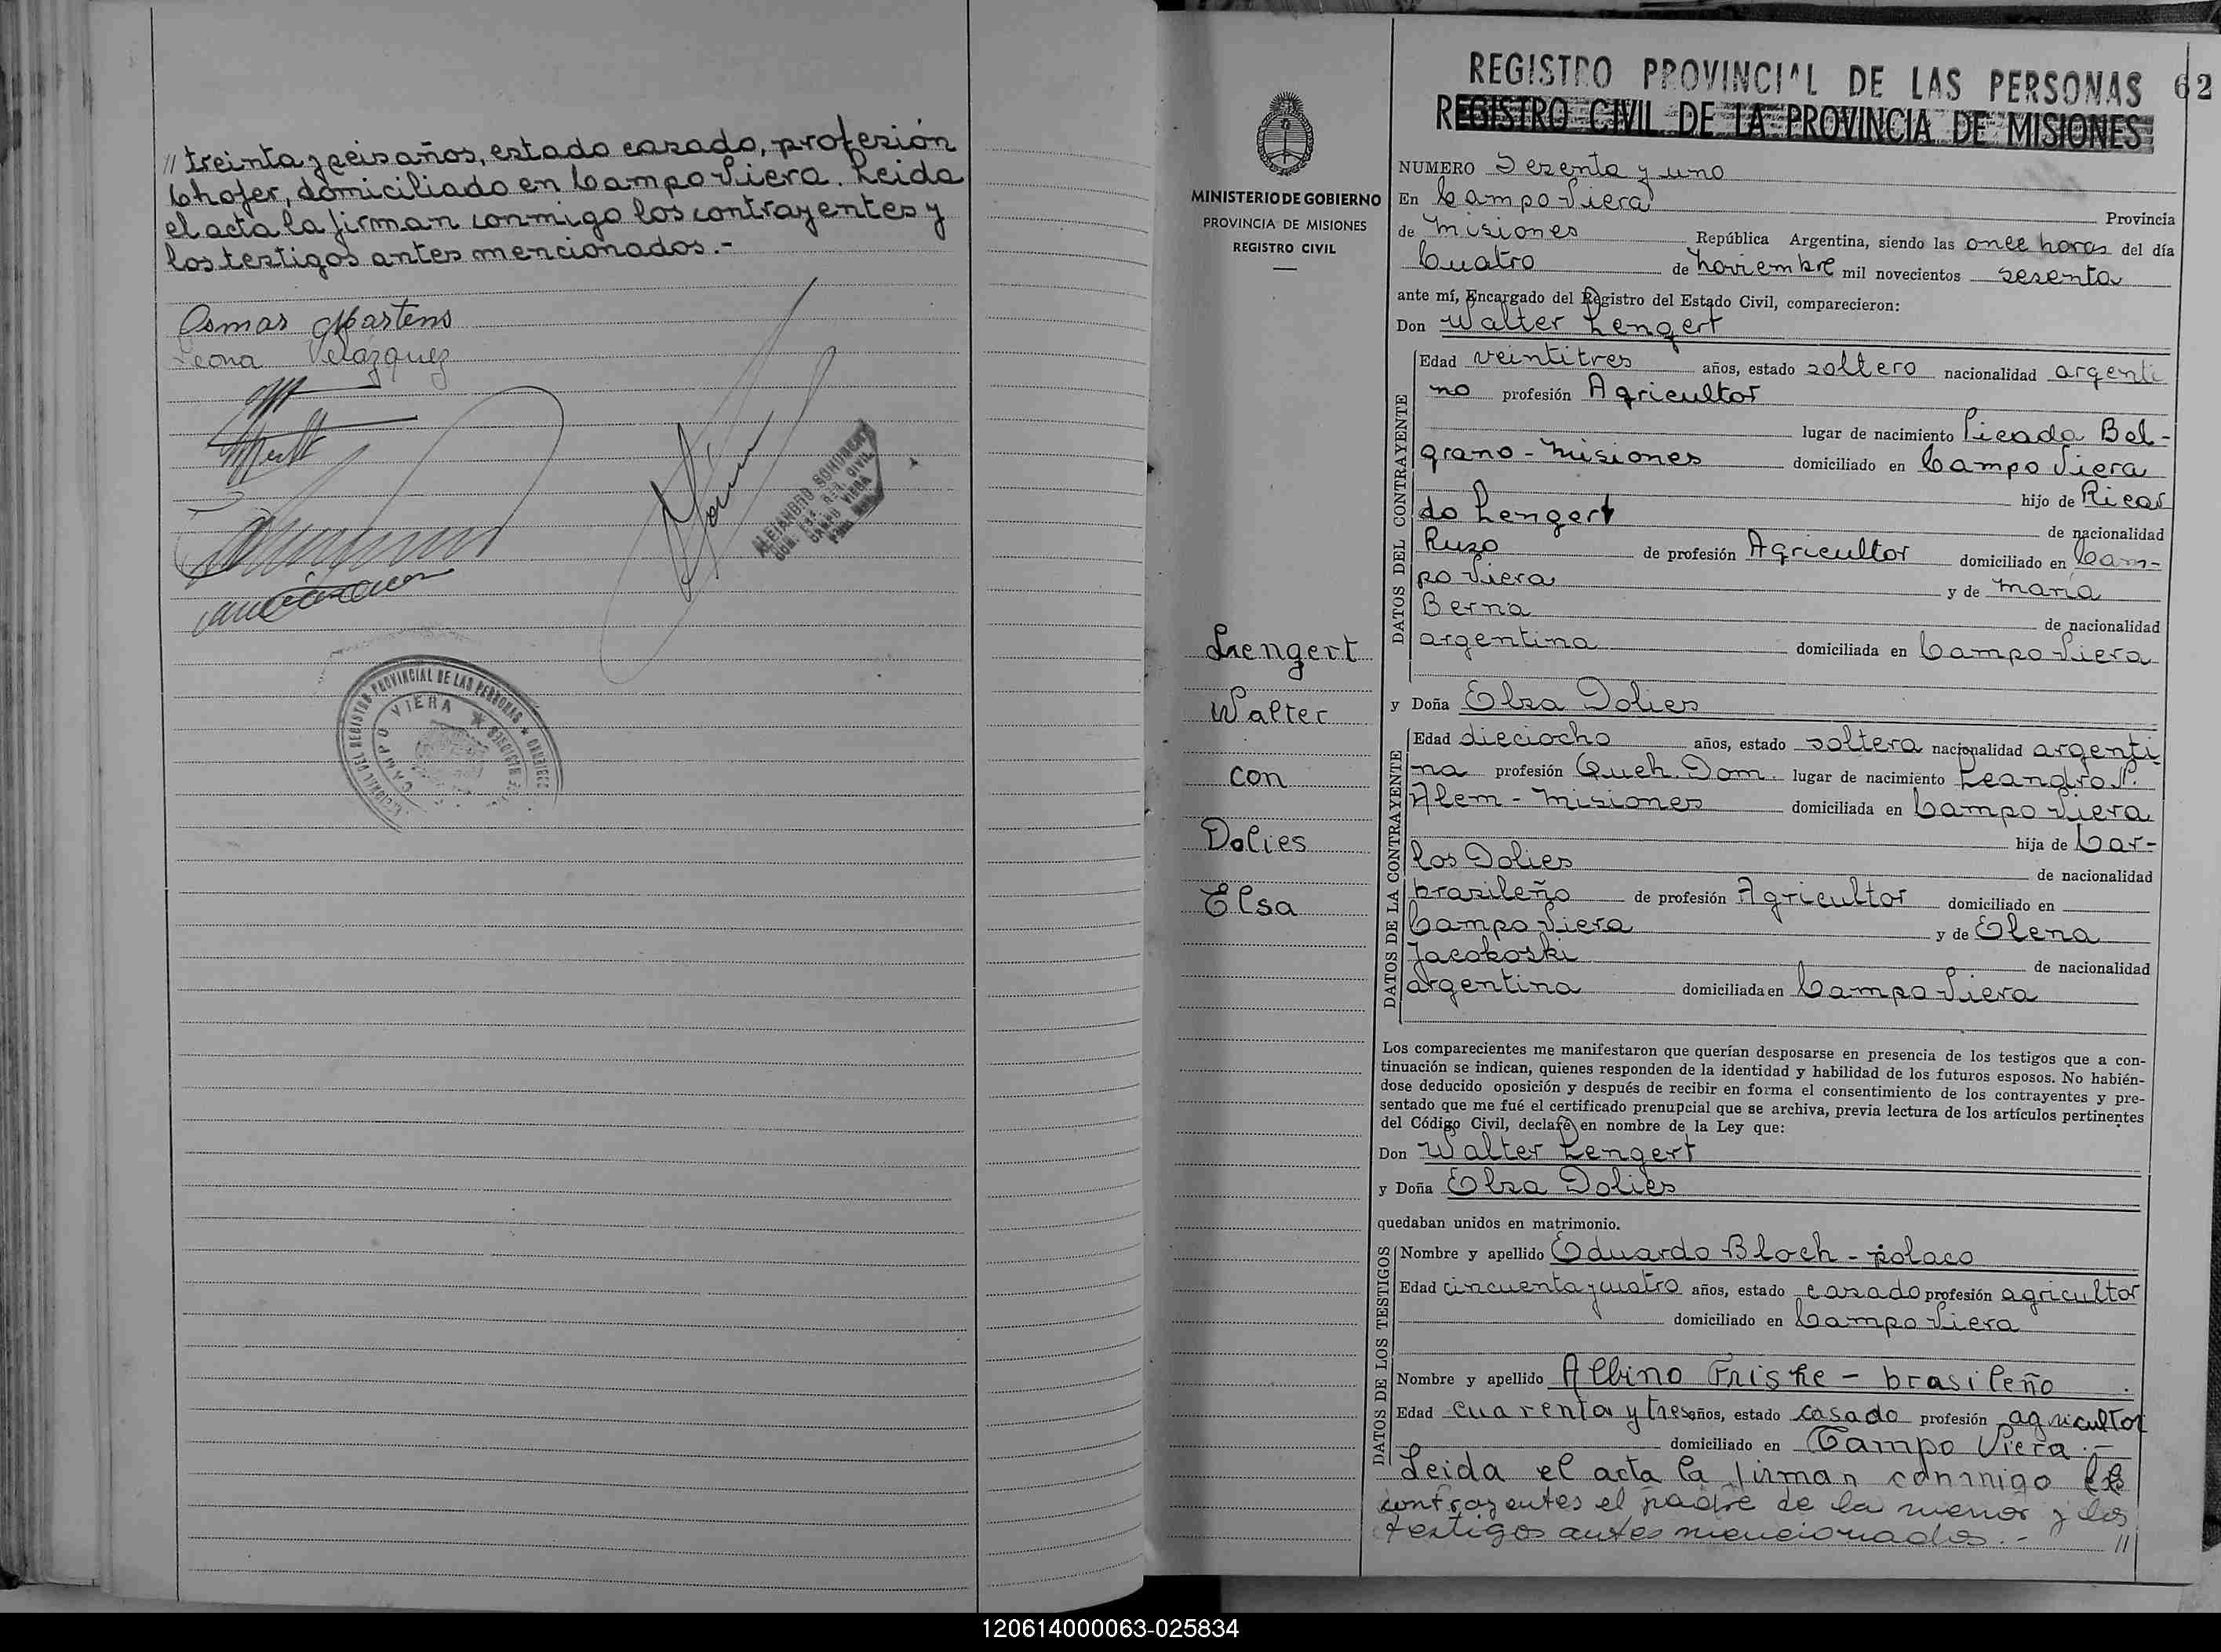 // treinta y seis años, estado casado, profesión
Chofer, domiciliado en Campo Viera. Leida
el acta la firman conmigo los contrayentes y
los testigos antes mencionados.-
Osmar Martens
Leona Velazquez
ALEJANDRO
CAMPO VIERA
PROVINCIAL DE LAS PERSONAS
CAMPO VIERA
MISIONES
REGISTRO PROVINCIAL DE LAS PERSONAS 62
REGISTRO CIVIL DE LA PROVINCIA DE MISIONES
MINISTERIO DE GOBIERNO
PROVINCIA DE MISIONES
REGISTRO CIVIL
Lengert
Walter
con
Dolies
Elsa
NUMERO Sesenta y uno
En Campo Viera Provincia
de Misiones República Argentina, siendo las once horas del día
Cuatro de Noviembre mil novecientos sesenta
ante mí, Encargado del Registro del Estado Civil, comparecieron:
Don Walter Lengert
DATOS DEL CONTRAYENTE
Edad veintitres años, estado soltero nacionalidad argenti
no profesión Agricultor
lugar de nacimiento Picada Bel-
grano - Misiones domiciliado en Campo Viera
hijo de Ricar
do Lengert de nacionalidad
Ruso de profesión Agricultor domiciliado en Cam-
po Viera y de María
Berna de nacionalidad
argentina domiciliada en Campo Viera
y Doña Elsa Dolies
DATOS DE LA CONTRAYENTE
Edad dieciocho años, estado soltera nacionalidad argenti
na profesión Queh. Dom. lugar de nacimiento Leandro N.
Alem - Misiones domiciliada en Campo Viera
hija de Car-
los Dolies de nacionalidad
brasileño de profesión Agricultor domiciliado en
Campo Viera y de Elena
Jacokoski de nacionalidad
argentina domiciliada en Campo Viera
Los comparecientes me manifestaron que querían desposarse en presencia de los testigos que a con-
tinuación se indican, quienes responden de la identidad y habilidad de los futuros esposos. No habién-
dose deducido oposición y después de recibir en forma el consentimiento de los contrayentes y pre-
sentado que me fué el certificado prenupcial que se archiva, previa lectura de los artículos pertinentes
del Código Civil, declaré en nombre de la Ley que:
Don Walter Lengert
y Doña Elsa Dolies
quedaban unidos en matrimonio.
DATOS DE LOS TESTIGOS
Nombre y apellido Eduardo Bloch - polaco
Edad cincuenta y cuatro años, estado casado profesión agricultor
domiciliado en Campo Viera
Nombre y apellido Albino Friske - brasileño
Edad cuarenta y tres años, estado casado profesión agricultor
domiciliado en Campo Viera.-
Leida el acta la firman conmigo los
contrayentes el padre de la menor y los
testigos antes mencionados.- //
120614000063-025834